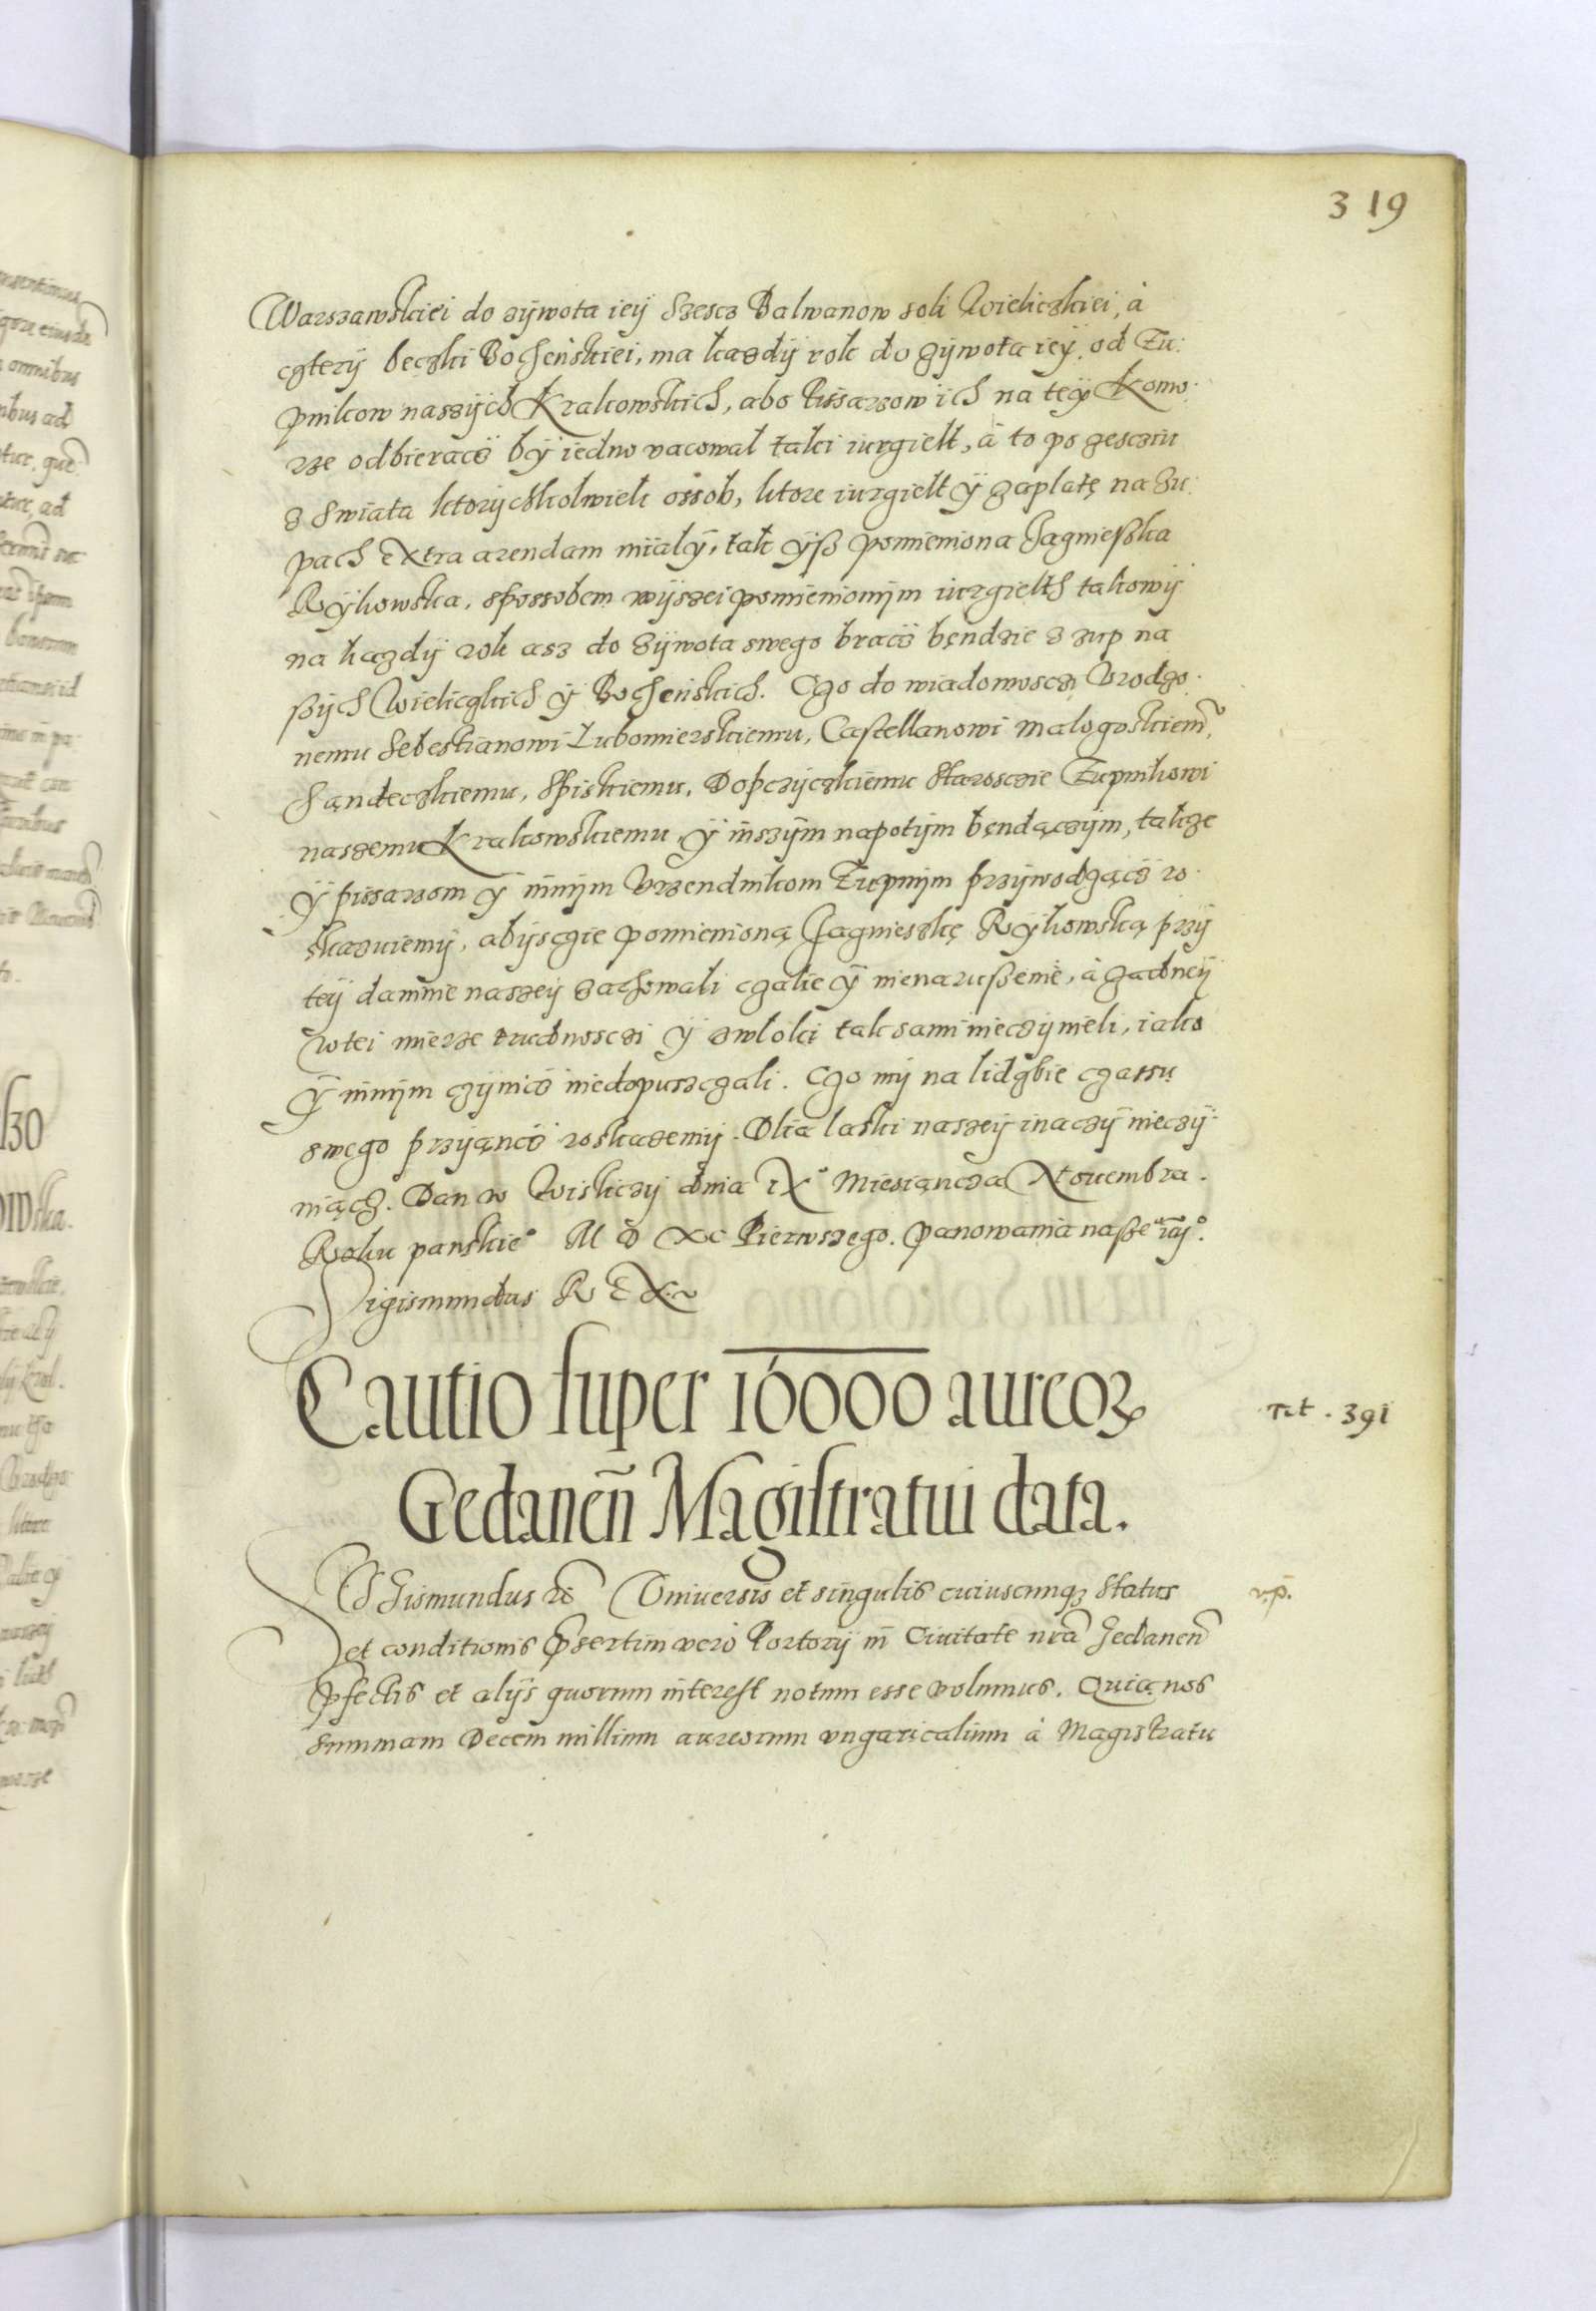 319
Warszawskiei do zywota iey Szescz Balwanow soli Wieliczkiei, à
cztery beczki Bochenskiei, ma kazdy rok do zywota iey od Zu:
pnikow naszych Krakowskich, abo Pissarzow ich na tey Komo:
rze odbieracz by iedno vacowal taki iurgielt, à to po zesczin
z Swiata ktorychkolwiek ossob, ktore iurgielt ÿ zaplatę na Zu:
pach extra arendam mialy, tak yß pomieniona Jagnießka
Rykowska, spossobem wyszei pomienionym iurgielth takowy
na kazdy rok asz do zywota swego bracz bęndzie z zup na
ßych Wieliczkich ÿ Bochenskich. Czo do wiadomosczi Vrodzo:
nemu Sebestianowi Lubomierskiemu, Castellanowi Malogoskiem̃,
Sąndeczkiemu, Spiskiemu, Dopczyczkiemu Staroscie Zupnikowi
naszemu Krakowskiemu, ÿ inszym napotym będączym, takze
ÿ pissarzom ÿ innym Vrzendnikom Zupnym przywodzącz ro:
skazuiemy, abysczie pomienioną Jagnieszkę Rykowską przy
tey daninie naszey zachowali czalie ÿ nienarußenie, à zadney
w tei mierze trudnosczi ÿ zwloki tak sami nieczynieli, iako
ÿ innym czynicz niedopusczali. Czo my na lidzbie czassu
swego przyąncz roskazemy. Dlia laski naszey inaczy nieczy:
niącz. Dan w Wisliczy dnia IXº Miesiąncza Nouembra.
Roku panskieº M D XC Pierwszego. Panowania naßeº iiijº.
Sigismundus REX.
Cautio super 10000 aureoꝝ
Gedanen̄ Magistratui data.
Tit. 391
SIGismundus 3ᵘˢ Vniuersis et singulis cuiuscunqꝫ status
v.p.
et conditionis p̄sertim vero Portorij in Ciuitate nr̃a Gedanen̄
p̄fectis et alijs quorum interest notum esse volumus. Quia nos
summam Decem millium aureorum vngaricalium à Magistratu